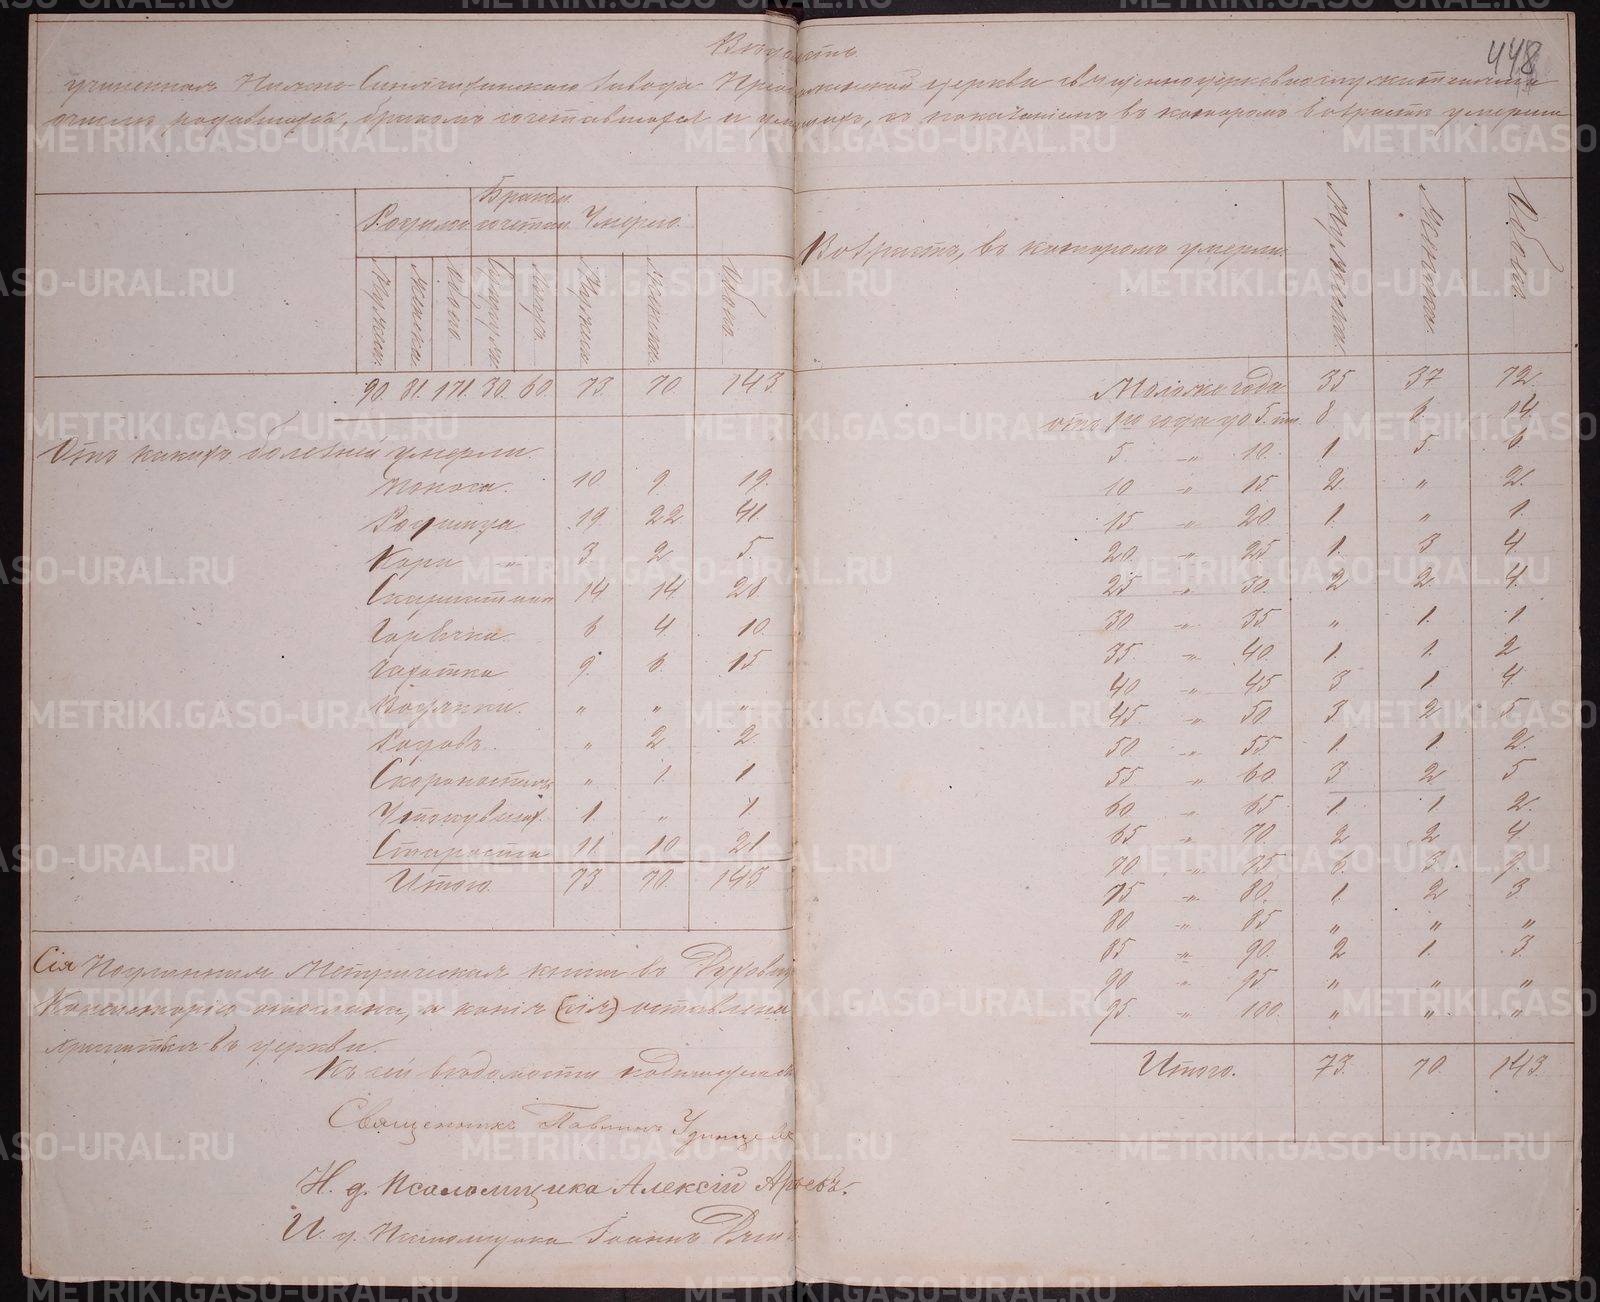 448
Вѣдомость
учиненная Нижне-Синячихинскаго завода церкви священноцерковнослужителями
о числѣ родившихся, бракомъ сочетавшихся и умершихъ, съ показаніемъ въ которомъ возрастѣ умерли
Родилось Бракомъ сочетано Умерло.
Мужеска. Женска. Обоего. Супружествъ Лицъ. Мужска. Женска. Обоего.
90. 81. 171. 30. 60. 73. 70. 143.
Отъ какихъ болѣзней умерли.
Поноса. 10. 9. 19.
Родимца 19. 22 41.
Кори " 3 2 5.
Скарлатина 14 14. 28
Горячка 6 4. 10.
Чахотка 9. 6. 15
Водянки. " " "
Родовъ. " 2 2.
Скоропостижн " 1. 1
Утонувшихъ. 1. " 1.
Старости 11. 10. 21
Итого. 73. 70. 143
Сія Подлинная Метрическая книга въ Духовную
Консисторію отослана, а копія (сія) оставлена
хранится въ церкви.
Къ сей вѣдомости подписуемся
Священникъ Павлинъ Удинцевъ
И. д. Псаломщика Алексій Арѳевъ.
И. д. Псаломщика Іоаннъ
Возрастъ, въ которомъ умерли. Мужеска. Женска. Обоего.
Моложе года 35 37 72.
отъ 1го года до 5. ти. 8 6. 14.
5 " 10. 1. 5. 6.
10 " 15. 2. " 2.
15 " 20. 1. " 1.
20. " 25 1. 3 4.
25 " 30. 2 2. 4.
30 " 35. " 1. 1
35. " 40. 1. 1. 2
40 " 45 3 1 4.
45. " 50 3 2 5.
50 " 55 1. 1. 2.
55. " 60 3 2 5
60 " 65 1. 1. 2.
65 " 70. 2 2 4.
70 " 75 6. 3. 9.
75 " 80. 1. 2 3.
80 " 85 " " "
85 " 90. 2 1. 3
90 " 95 " " "
95. " 100. " " "
Итого. 73. 70. 143.
METRIKI.GASO-URAL.RU